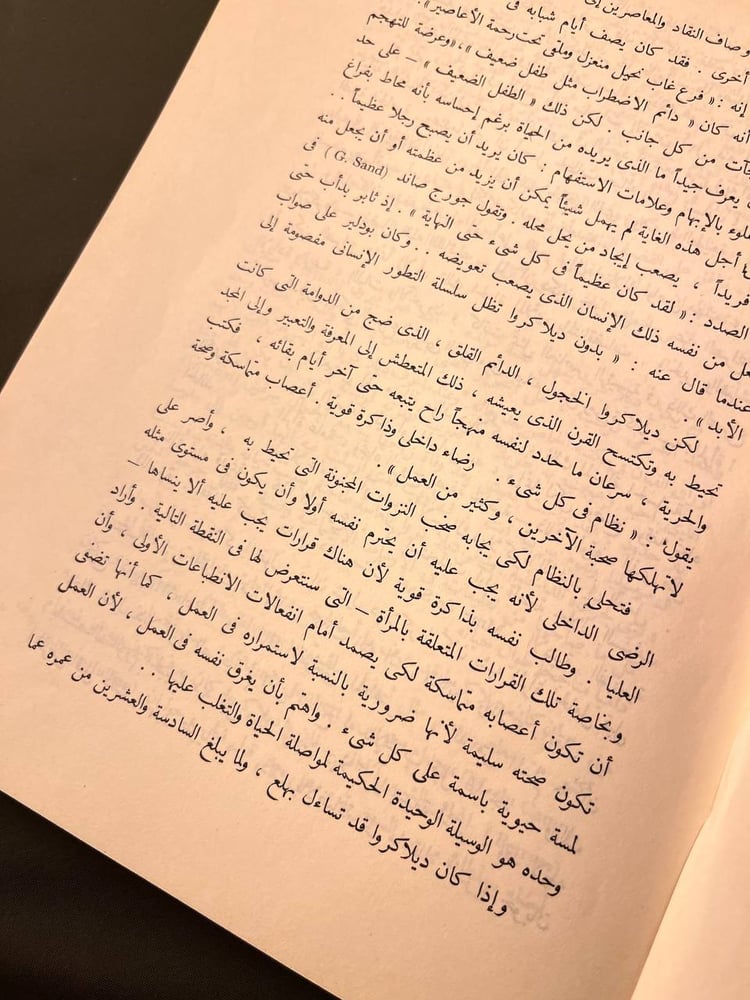 وصاف النقاد والمعاصرين إلى
أخرى . فقد كان يصف أيام شبابه فى
إنه : « فرع غاب نحيل منعزل وملقى تحت رحمة الأعاصير » .
أنه كان « دائم الاضطراب مثل طفل ضعيف » ، « وعرضة للتهجم
من كل جانب . لكن ذلك « الطفل الضعيف » – على حد
يعرف جيداً ما الذى يريده من الحياة برغم إحساسه بأنه محاط بفراغ
بالإبهام وعلامات الاستفهام : كان يريد أن يصبح رجلا عظيماً . .
أجل هذه الغاية لم يهمل شيئاً يمكن أن يزيد من عظمته أو أن يجعل منه
فريداً ، يصعب إيجاد من يحل محله . وتقول جورج صاند (G. Sand) فى
الصدد : « لقد كان عظيماً فى كل شىء حتى النهاية » . إذ ثابر بدأب حتى
من نفسه ذلك الإنسان الذى يصعب تعويضه . . وكان بودلير على صواب
عندما قال عنه : « بدون ديلاكروا تظل سلسلة التطور الإنسانى مفصومة إلى
الأبد » .
لكن ديلاكروا الخجول ، الدائم القلق ، الذى ضج من الدوامة التى كانت
تحيط به وتكتسح القرن الذى يعيشه ، ذلك المتعطش إلى المعرفة والتعبير وإلى المجد
والحرية ، سرعان ما حدد لنفسه منهجاً راح يتبعه حتى آخر أيام بقائه ، فكتب
يقول : « نظام فى كل شىء . رضاء داخلى وذاكرة قوية . أعصاب متماسكة وصحة
لا تهلكها صحبة الآخرين ، وكثير من العمل » .
فتحلى بالنظام لكى يجابه صخب النزوات المجنونة التى تحيط به ، وأصر على
الرضى الداخلى لأنه يجب عليه أن يحترم نفسه أولا وأن يكون فى مستوى مثله
العليا . وطالب نفسه بذاكرة قوية لأن هناك قرارات يجب عليه ألا ينساها –
وبخاصة تلك القرارات المتعلقة بالمرأة – التى سنتعرض لها فى النقطة التالية . وأراد
أن تكون أعصابه متماسكة لكى يصمد أمام انفعالات الانطباعات الأولى ، وأن
تكون صحته سليمة لأنها ضرورية بالنسبة لاستمراره فى العمل ، كما أنها تضفى
لمسة حيوية باسمة على كل شىء . واهتم بأن يغرق نفسه فى العمل ، لأن العمل
وحده هو الوسيلة الوحيدة الحكيمة لمواصلة الحياة والتغلب عليها . .
وإذا كان ديلاكروا قد تساءل بهلع ، ولما يبلغ السادسة والعشرين من عمره عما